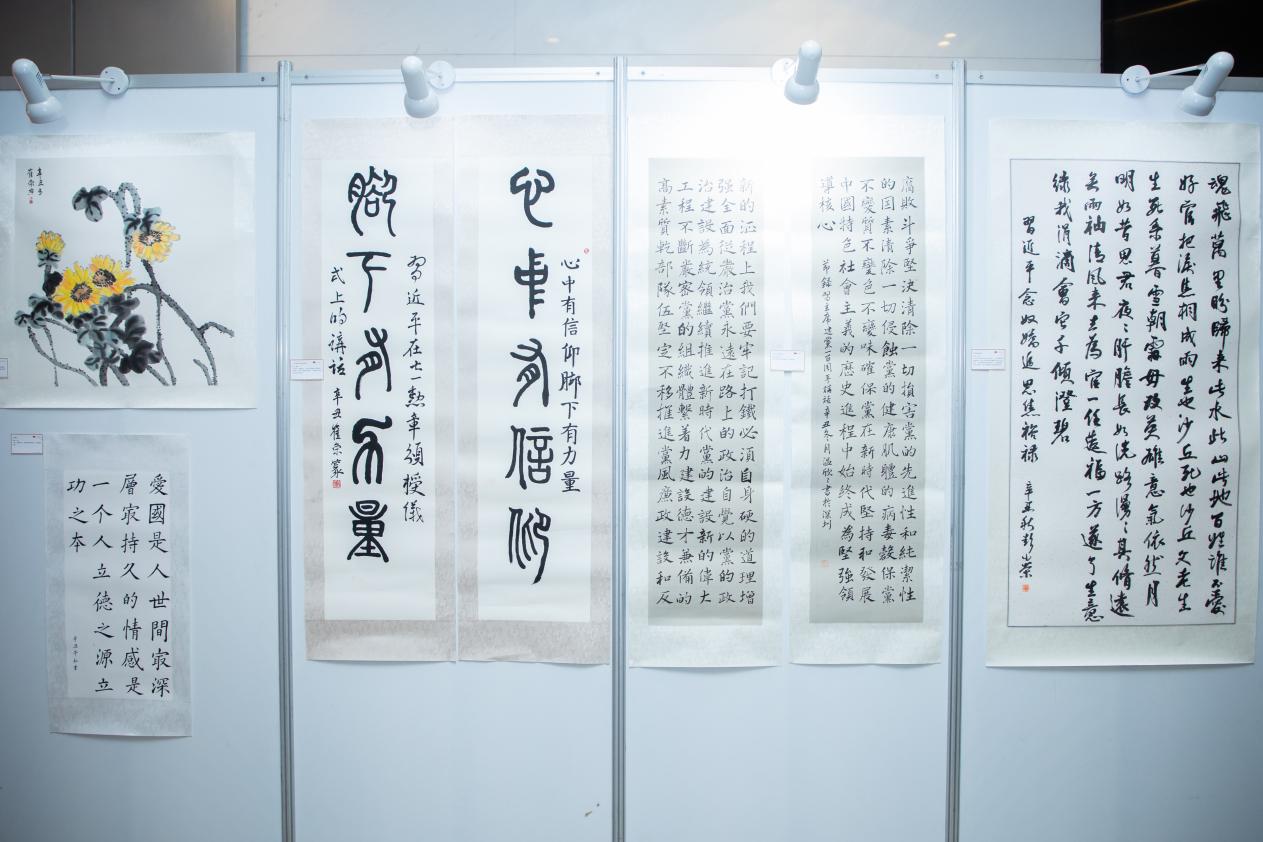 愛國是人世間㝡深
層㝡持久的情感是
一个人立德之源立
功之本
心中有信仰
心中有信仰脚下有力量
腳下有力量
習近平在七一勲章頒授儀
式上的講話 辛丑崔榮篆
新的征程上我們要牢記打鐵必須自身硬的道理增
強全面從嚴治黨永遠在路上的政治自覺以黨的政
治建設為統領繼續推進新時代黨的建設新的偉大
工程不斷嚴密黨的組織體繫着力建設德才兼備的
高素質乾部隊伍堅定不移推進黨風廉政建設和反
腐敗斗爭堅決清除一切損害黨的先進性和純潔性
的因素清除一切侵蝕黨的健康肌體的病毒確保黨
不變質不變色不變味確保黨在新時代堅持和發展
中國特色社會主義的歷史進程中始終成為堅強領
導核心
節錄習主席建黨一百周年講話辛丑冬月書於深圳
魂飛萬里盼歸來此水此山此地百姓誰不愛
好官把淚焦桐成雨生也沙丘死也沙丘父老生
生死系暮雪朝霜毋改英雄意氣依然月
明如昔思君夜〻肝膽長如洗路漫〻其脩遠
矣兩袖清風來去為官一任造福一方遂了生意
綠我涓滴會它千頃澄碧
習近平念奴嬌追思焦裕祿 辛丑秋彭榮